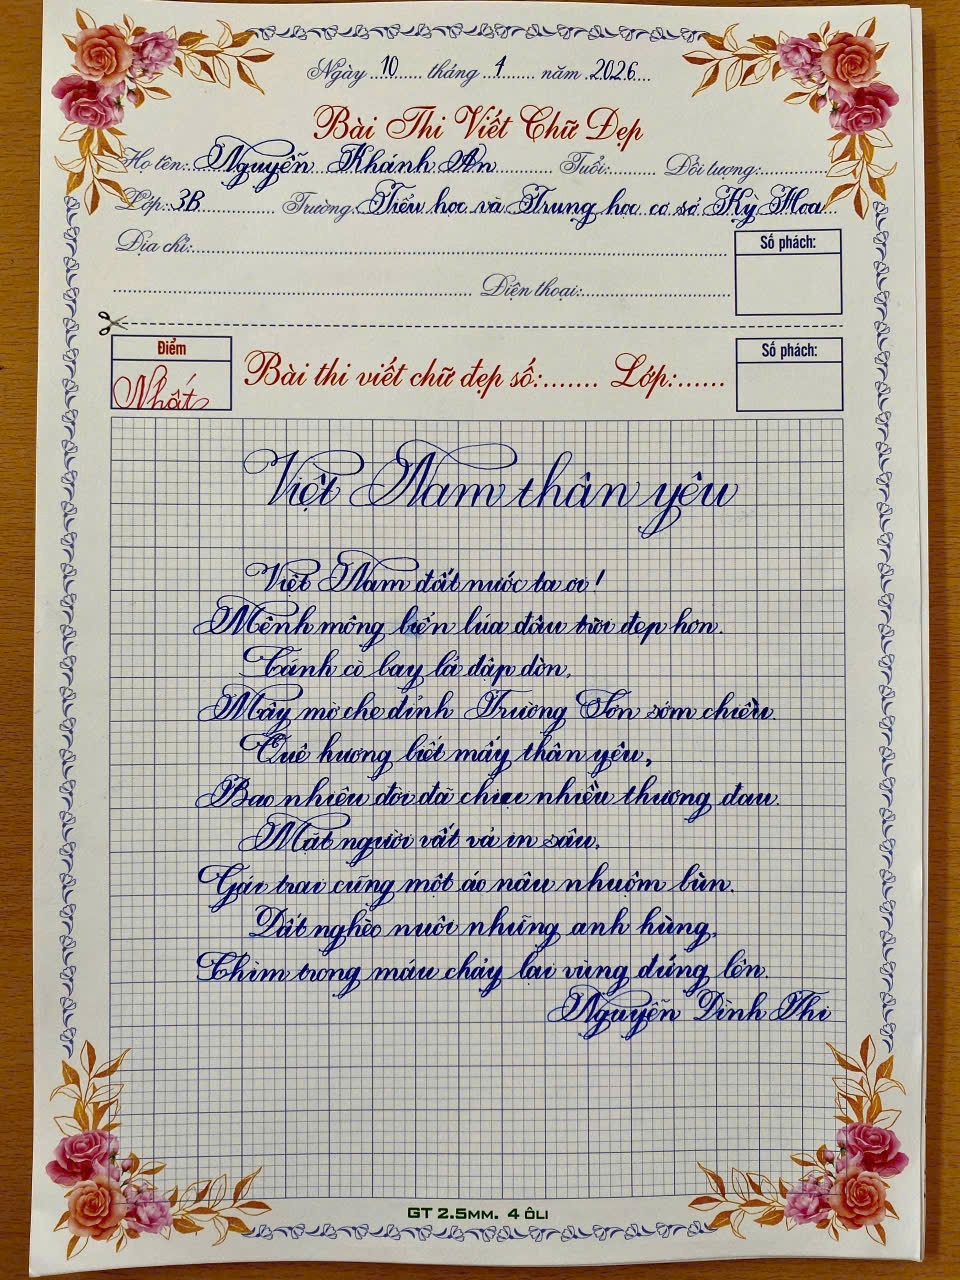 Ngày 10 tháng 4 năm 2026
Bài Thi Viết Chữ Đẹp
Họ tên: Nguyễn Khánh An Tuổi: Đối tượng:
Lớp: 3B Trường: Tiểu học và Trung học cơ sở Kỳ Hoa
Địa chỉ:
Số phách:
Điện thoại:
Điểm
Nhất
Bài thi viết chữ đẹp số: Lớp:
Số phách:
Việt Nam thân yêu
Việt Nam đất nước ta ơi!
Mênh mông biển lúa đâu trời đẹp hơn.
Cánh cò bay lả dập dờn,
Mây mờ che đỉnh Trường Sơn sớm chiều.
Quê hương biết mấy thân yêu,
Bao nhiêu đời đã chịu nhiều thương đau.
Mặt người vất vả in sâu,
Gái trai cũng một áo nâu nhuộm bùn.
Đất nghèo nuôi những anh hùng,
Chìm trong máu chảy lại vùng đứng lên.
Nguyễn Đình Thi
GT 2.5MM. 4 ÔLI